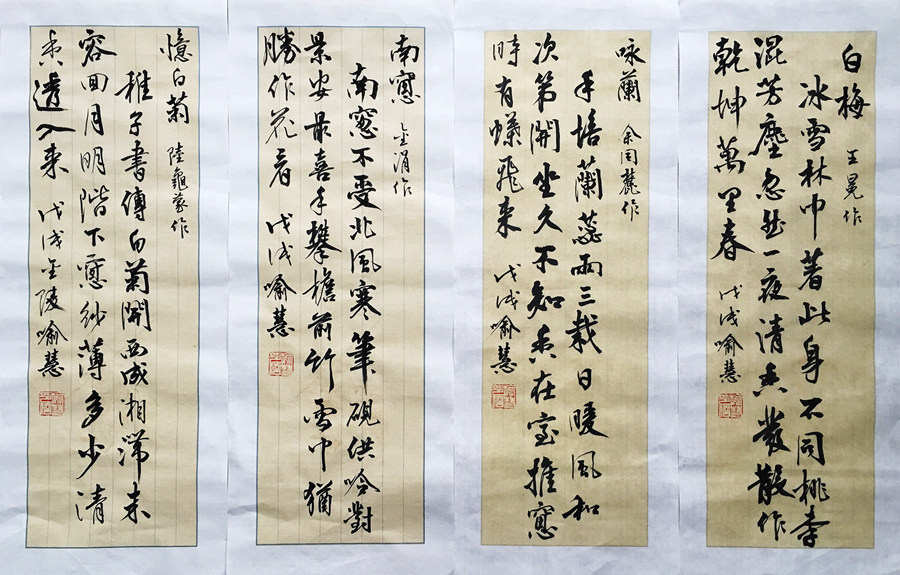 白梅 王冕作
冰雪林中著此身不同桃李
混芳塵忽然一夜清香發散作
乾坤萬里春 戊戌喻慧
咏蘭 余同麓作
手培蘭蕊兩三栽日暖風和
次第開坐久不知香在室推窻
時有蝶飛来 戊戌喻慧
南窻 金涓作
南窻不受北風寒筆硯供吟對
景安最喜手攀檐前竹雪中猶
勝作花看 戊戌喻慧
憶白菊 陸龜蒙作
稚子書傳白菊開西成湘滞未
容回月明階下窻紗薄多少清
香透入来 戊戌金陵喻慧